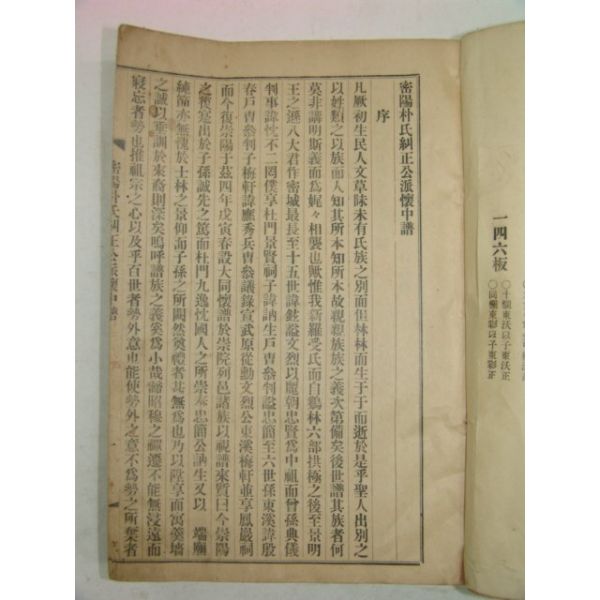 密陽朴氏糾正公派懷中譜
序
凡厥初生民人文草昧未有氏族之別而但林林而生于于而逝於是乎聖人出別之
以姓類之以族而人知其所本知所本故親親族族之義次第備矣後世譜其族者何
莫非講明斯義而爲娓々相襲也歟惟我新羅受氏而自鷄林六部拱極之後至景明
王之遜八大君作密城最長至十五世諱鉉諡文烈以麗朝忠賢爲中祖而曾孫典儀
判事諱忱不二罔僕享杜門景賢祠子諱訥生戶曹參判諡忠簡至六世孫東溪諱殷
春戶曹參判子梅軒諱應秀兵曹參議錄宣武原從勳文烈公東溪梅軒並享鳳巖祠
而今復崇陽于茲四年戊寅春設大同懷譜於崇院列邑諸族以視譜來質曰今崇陽
之復寔出於子孫誠先之篤而杜門九逸忱國人之所崇奉忠簡公訥生又以 端廟
純節亦無愧於士林之景仰詢子孫之所闕然奠禮者甚無爲也乃以陞享而寓羹墻
之誠以垂訓於來裔則深矣嗚呼譜族之義奚爲小哉蓋昭穆之禪遷不能無浸遠而
寢忘者勢也推祖宗之心以及乎百世者勢外意也能使勢外之意不爲勢之所棄者
密陽朴氏糾正公派懷中譜
一四六板
○十 東沃以子東沃正
○同 東彩以子東彩正